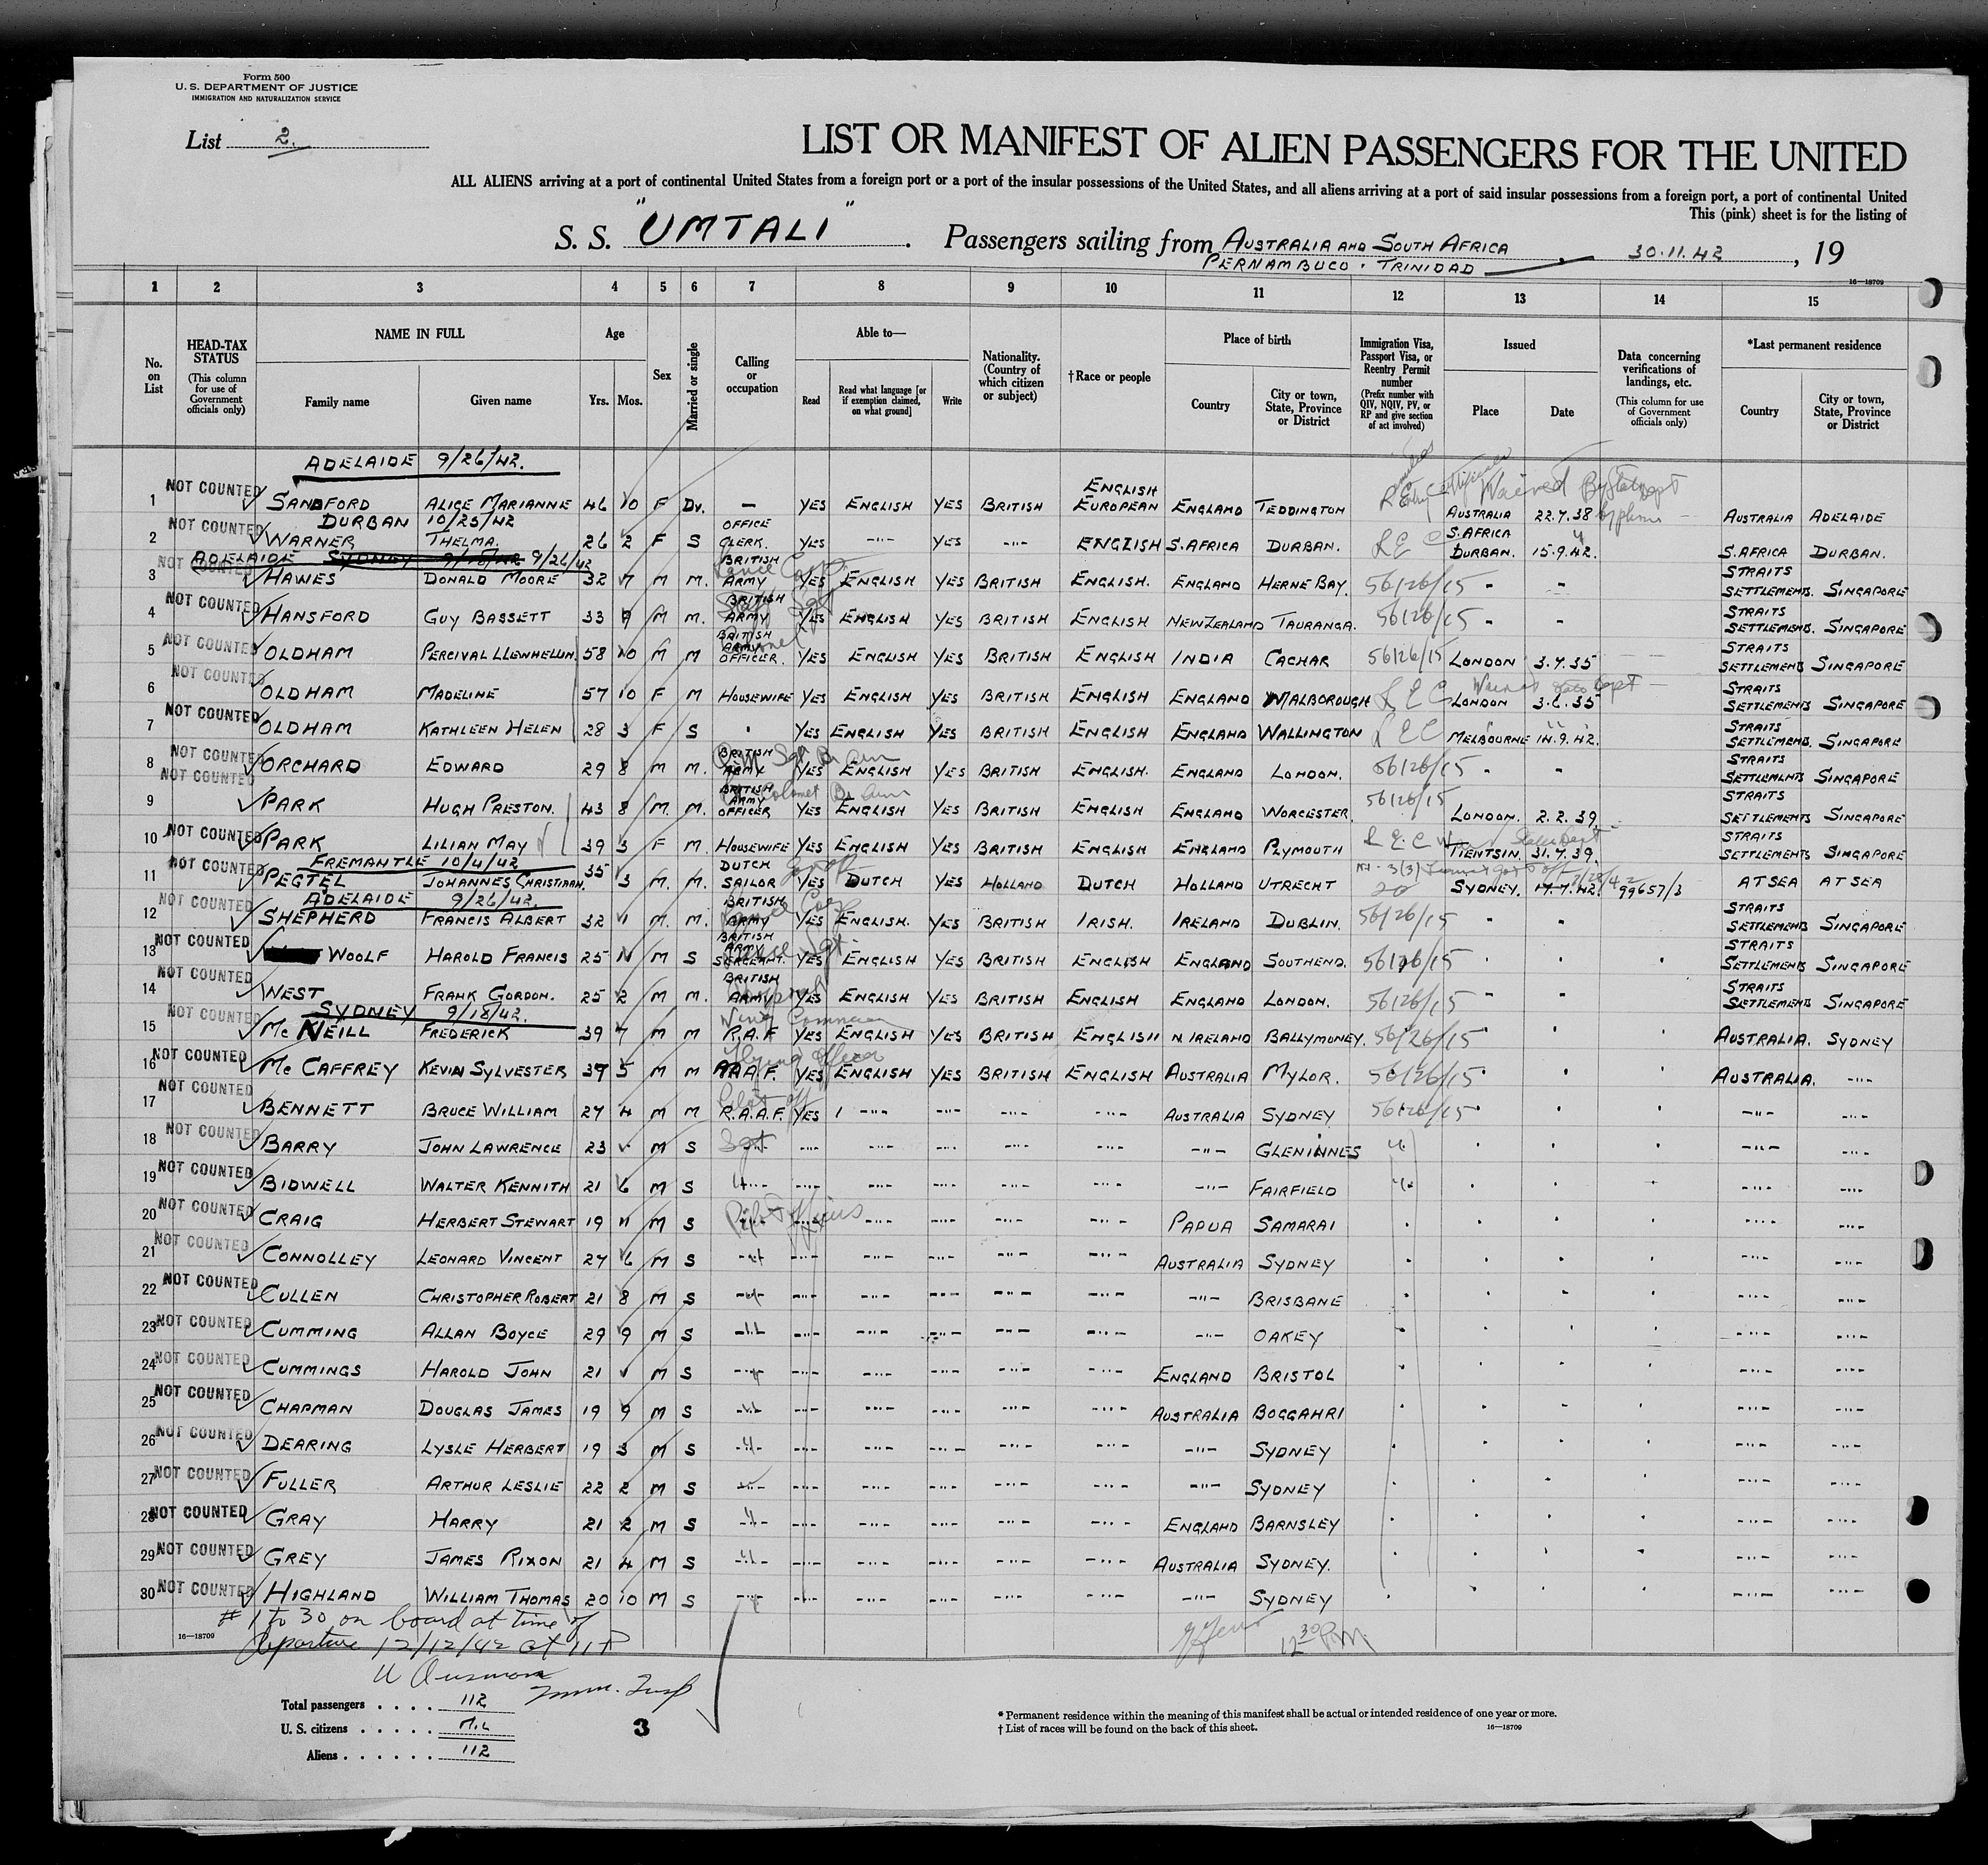 Form 500
U. S. DEPARTMENT OF JUSTICE
IMMIGRATION AND NATURALIZATION SERVICE
List 2.
LIST OR MANIFEST OF ALIEN PASSENGERS FOR THE UNITED
ALL ALIENS arriving at a port of continental United States from a foreign port or a port of the insular possessions of the United States, and all aliens arriving at a port of said insular possessions from a foreign port, a port of continental United
This (pink) sheet is for the listing of
S. S. "UMTALI". Passengers sailing from AUSTRALIA AND SOUTH AFRICA 30.11.42, 19
PERNAMBUCO . TRINIDAD
16—18709
1 2 3 4 5 6 7 8 9 10 11 12 13 14 15
No. on List
HEAD-TAX STATUS (This column for use of Government officials only)
NAME IN FULL Family name Given name
Age Yrs. Mos.
Sex
Married or single
Calling or occupation
Able to— Read Read what language [or if exemption claimed, on what ground] Write
Nationality. (Country of which citizen or subject)
†Race or people
Place of birth Country City or town, State, Province or District
Immigration Visa, Passport Visa, or Reentry Permit number (Prefix number with QIV, NQIV, PV, or RP and give section of act involved)
Issued Place Date
Data concerning verifications of landings, etc. (This column for use of Government officials only)
*Last permanent residence Country City or town, State, Province or District
ADELAIDE 9/26/42.
1 NOT COUNTED SANDFORD ALICE MARIANNE 46 10 F Dv. — YES ENGLISH YES BRITISH ENGLISH EUROPEAN ENGLAND TEDDINGTON Waived By State Dept AUSTRALIA 22.7.38 AUSTRALIA ADELAIDE
DURBAN 10/25/42
2 NOT COUNTED WARNER THELMA. 26 2 F S OFFICE CLERK. YES -"- YES -"- ENGLISH S. AFRICA DURBAN. L E C S. AFRICA DURBAN. 15.9.42. S. AFRICA DURBAN.
ADELAIDE SYDNEY 9/18/42 9/26/42
3 NOT COUNTED HAWES DONALD MOORE 32 7 M M. BRITISH ARMY Lance Corp. YES ENGLISH YES BRITISH ENGLISH. ENGLAND HERNE BAY. 56126/15 STRAITS SETTLEMENTS. SINGAPORE
4 NOT COUNTED HANSFORD GUY BASSETT 33 9 M M. BRITISH ARMY YES ENGLISH YES BRITISH ENGLISH NEW ZEALAND TAURANGA. 56126/15 STRAITS SETTLEMENTS. SINGAPORE
5 NOT COUNTED OLDHAM PERCIVAL LLEWHELLIN. 58 10 M M BRITISH ARMY OFFICER. YES ENGLISH YES BRITISH ENGLISH INDIA CACHAR 56126/15 LONDON 3.7.35 STRAITS SETTLEMENTS SINGAPORE
6 NOT COUNTED OLDHAM MADELINE 57 10 F M HOUSEWIFE YES ENGLISH YES BRITISH ENGLISH ENGLAND MALBOROUGH L E C Waived State Dept LONDON 3.6.35 STRAITS SETTLEMENTS SINGAPORE
7 NOT COUNTED OLDHAM KATHLEEN HELEN 28 3 F S YES ENGLISH YES BRITISH ENGLISH ENGLAND WALLINGTON L E C MELBOURNE 14.9.42. STRAITS SETTLEMENTS. SINGAPORE
8 NOT COUNTED ORCHARD EDWARD 29 8 M M. BRITISH ARMY YES ENGLISH YES BRITISH ENGLISH. ENGLAND LONDON. 56126/15 STRAITS SETTLEMENTS SINGAPORE
9 NOT COUNTED PARK HUGH PRESTON. 43 8 M. M. BRITISH ARMY OFFICER YES ENGLISH YES BRITISH ENGLISH ENGLAND WORCESTER. 56126/15 LONDON. 2.2.39. STRAITS SETTLEMENTS SINGAPORE
10 NOT COUNTED PARK LILIAN MAY 39 3 F M. HOUSEWIFE YES ENGLISH YES BRITISH ENGLISH ENGLAND PLYMOUTH L E C TIENTSIN. 31.7.39. STRAITS SETTLEMENTS SINGAPORE
FREMANTLE 10/4/42
11 NOT COUNTED PEGTEL JOHANNES CHRISTIAAN. 35 3 M. M. DUTCH SAILOR YES DUTCH YES HOLLAND DUTCH HOLLAND UTRECHT SYDNEY. 17.7.42. 99657/3 AT SEA AT SEA
ADELAIDE 9/26/42.
12 NOT COUNTED SHEPHERD FRANCIS ALBERT 32 11 M. M. BRITISH ARMY YES ENGLISH. YES BRITISH IRISH. IRELAND DUBLIN. 56126/15 STRAITS SETTLEMENTS SINGAPORE
13 NOT COUNTED WOOLF HAROLD FRANCIS 25 11 M S BRITISH ARMY SERGEANT. YES ENGLISH YES BRITISH ENGLISH ENGLAND SOUTHEND. 56126/15 STRAITS SETTLEMENTS SINGAPORE
14 NOT COUNTED WEST FRANK GORDON. 25 2 M M. BRITISH ARMY Corporal YES ENGLISH YES BRITISH ENGLISH ENGLAND LONDON. 56126/15 STRAITS SETTLEMENTS SINGAPORE
SYDNEY 9/18/42.
15 NOT COUNTED Mc NEILL FREDERICK 39 7 M M Wing Comman R.A.F YES ENGLISH YES BRITISH ENGLISH N. IRELAND BALLYMONEY. 56126/15 AUSTRALIA. SYDNEY
16 NOT COUNTED Mc CAFFREY KEVIN SYLVESTER 39 5 M M Flying officer RAAF. YES ENGLISH YES BRITISH ENGLISH AUSTRALIA MYLOR. 56126/15 AUSTRALIA. -"-
17 NOT COUNTED BENNETT BRUCE WILLIAM 27 4 M M Pilot off R.A.A.F. YES -"- -"- -"- -"- AUSTRALIA SYDNEY 56126/15 -"- -"-
18 NOT COUNTED BARRY JOHN LAWRENCE 23 M S Sgt -"- -"- -"- -"- -"- -"- GLENINNES -"- -"-
19 NOT COUNTED BIDWELL WALTER KENNITH 21 6 M S -"- -"- -"- -"- -"- -"- -"- FAIRFIELD -"- -"-
20 NOT COUNTED CRAIG HERBERT STEWART 19 11 M S Pilot Officers -"- -"- -"- -"- -"- PAPUA SAMARAI -"- -"-
21 NOT COUNTED CONNOLLEY LEONARD VINCENT 27 6 M S -"- -"- -"- -"- -"- -"- AUSTRALIA SYDNEY -"- -"-
22 NOT COUNTED CULLEN CHRISTOPHER ROBERT 21 8 M S -"- -"- -"- -"- -"- -"- -"- BRISBANE -"- -"-
23 NOT COUNTED CUMMING ALLAN BOYCE 29 9 M S -"- -"- -"- -"- -"- -"- -"- OAKEY -"- -"-
24 NOT COUNTED CUMMINGS HAROLD JOHN 21 M S -"- -"- -"- -"- -"- -"- ENGLAND BRISTOL -"- -"-
25 NOT COUNTED CHAPMAN DOUGLAS JAMES 19 9 M S -"- -"- -"- -"- -"- -"- AUSTRALIA BOGGAHRI -"- -"-
26 NOT COUNTED DEARING LYSLE HERBERT 19 3 M S -"- -"- -"- -"- -"- -"- -"- SYDNEY -"- -"-
27 NOT COUNTED FULLER ARTHUR LESLIE 22 2 M S -"- -"- -"- -"- -"- -"- -"- SYDNEY -"- -"-
28 NOT COUNTED GRAY HARRY 21 2 M S -"- -"- -"- -"- -"- -"- ENGLAND BARNSLEY -"- -"-
29 NOT COUNTED GREY JAMES RIXON 21 4 M S -"- -"- -"- -"- -"- -"- AUSTRALIA SYDNEY. -"- -"-
30 NOT COUNTED HIGHLAND WILLIAM THOMAS 20 10 M S -"- -"- -"- -"- -"- -"- -"- SYDNEY -"- -"-
# 1 to 30 on board at time of
16—18709 departure 12/12/42 at 11 P 12 30 P.M.
Imm. Insp
Total passengers . . . . 112
U. S. citizens . . . . . NIL
Aliens . . . . . . 112
3
* Permanent residence within the meaning of this manifest shall be actual or intended residence of one year or more.
† List of races will be found on the back of this sheet. 16—18709